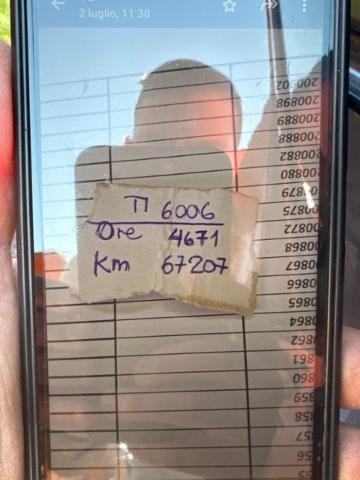 2 luglio, 11:30
TI 6006
Ore 4671
Km 67207
200898
200889
200888
200882
200880
00879
00875
00872
00868
00867
00866
00865
00864
0862
0861
860
859
858
857